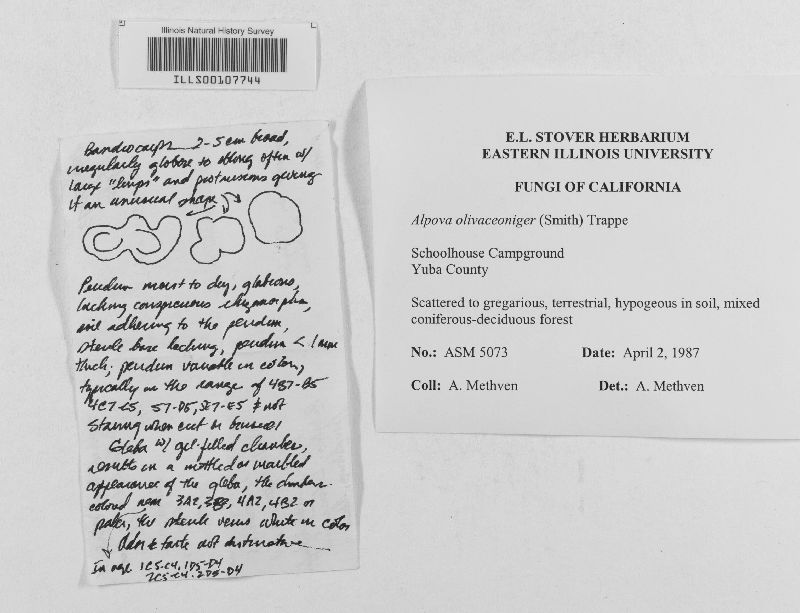 Illinois Natural History Survey
ILLS00107744
Basidiocarps 2-5 cm broad,
irregularly globose to oblong often w/
large "lumps" and protrusions giving
it an unusual shape
Peridium moist to dry, glabrous,
lacking conspicuous rhizomorphs,
soil adhering to the peridium,
sterile base lacking, peridium < 1 mm
thick; peridium variable in color,
typically in the range of 4B7-B5
4C7-C5, 57-D5, 5E7-E5 & not
staining when cut or bruised
Gleba w/ gel-filled chambers,
results in a mottled or marbled
appearance of the gleba, the chambers
colored near 3A2, 4A2, 4B2 or
paler, the sterile veins white in color
Odor & taste not distinctive
In age 1C5-C4, 1D5-D4
2C5-C4, 2D5-D4
E.L. STOVER HERBARIUM
EASTERN ILLINOIS UNIVERSITY
FUNGI OF CALIFORNIA
Alpova olivaceoniger (Smith) Trappe
Schoolhouse Campground
Yuba County
Scattered to gregarious, terrestrial, hypogeous in soil, mixed
coniferous-deciduous forest
No.: ASM 5073 Date: April 2, 1987
Coll: A. Methven Det.: A. Methven